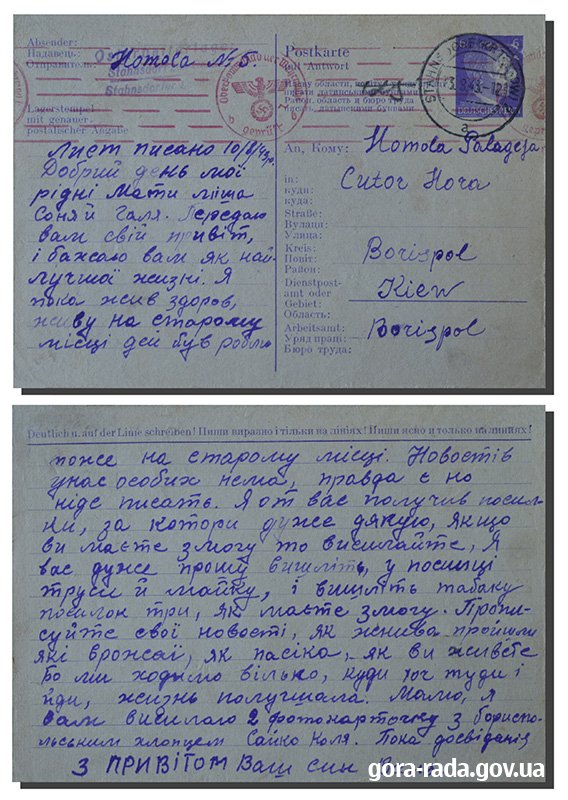 Absender:
Надавець:
Отправитель:
Homola № 5
Lagerstempel
mit genauer
postalischer Angabe
Лист писано 10/8/43р.
Добрий день мої
рідні Мати Міша
Соня й Галя. Передаю
вам свій привіт,
і бажаю вам як най
лучшої жизні. Я
пока жив здоров,
живу на старому
місці дей був роблю
Postkarte
mit Antwort
An, Кому: Homola Palageja
in: Cutor Hora
куди:
куда:
Straße:
Вулиця:
Улица:
Kreis: Borispol
Повіт:
Район:
Dienstpost-
amt oder Kiew
Gebiet:
Область:
Arbeitsamt: Borispol
Уряд праці:
Бюро труда:
Deutlich u. auf der Linie schreiben! Пиши виразно і тільки на лініях! Пиши ясно и только на линиях!
тоже на старому місці. Новостів
унас особих нема, правда є но
нідє писать. Я от вас получив посил-
ки, за котори дуже дякую, якщо
ви маєте змогу то висилайте, Я
вас дуже прошу вишліть, у посилці
труси й майку, і вишліть табаку
посилок три, як маєте змогу. Пропи-
суйте свої новості, як жнива пройшли
які врожаї, як пасіка, як ви живете
бо ми ходимо вільно, куди хоч туди і
йди, жизнь получшала. Мамо, я
вам висилаю 2 фотокарточку з бориспо-
льським хлопцем Сайко Коля. Пока досвіданія
З ПРИВІТОМ Ваш син
gora-rada.gov.ua